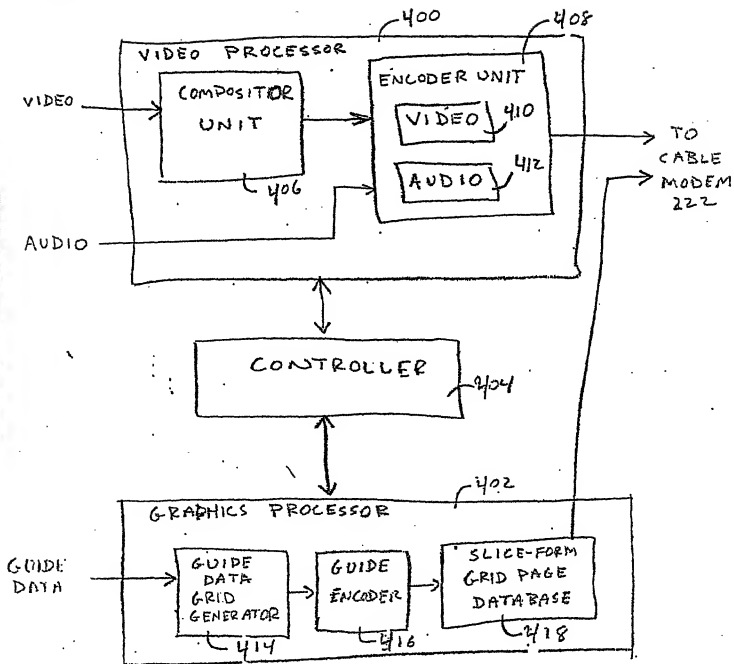 400
408
VIDEO PROCESSOR
VIDEO
COMPOSITOR
UNIT
406
ENCODER UNIT
VIDEO
410
AUDIO
412
TO
CABLE
MODEM
222
AUDIO
CONTROLLER
404
402
GRAPHICS PROCESSOR
GUIDE
DATA
GUIDE
DATA
GRID
GENERATOR
414
GUIDE
ENCODER
416
SLICE-FORM
GRID PAGE
DATABASE
418